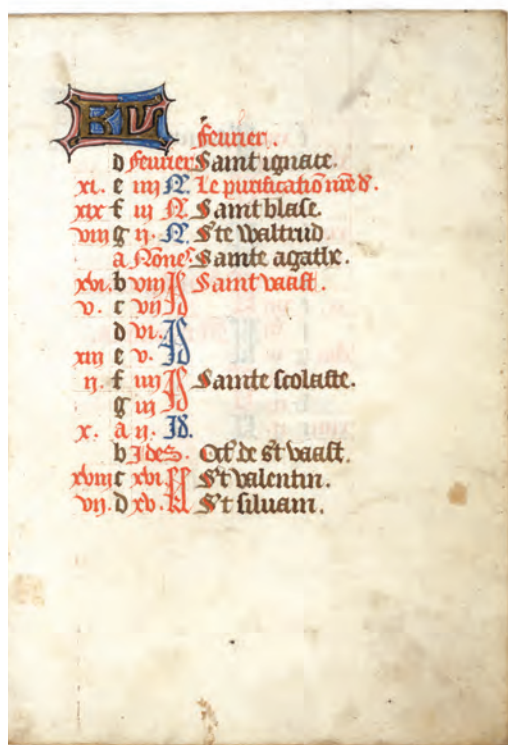 KL
feurier.
d feurier Saint ignace.
xi. e iiij N. Le purificatiō nr̄e d̄.
xix f iij N. Saint blase.
viij g ij. N. Ste Waltrud.
a None Sainte agathe.
xvi. b viij Id Saint vaast.
v. c vij Id
d vi. Id
xiij e v. Id
ij. f iiij Id Sainte scolaste.
g iij Id
x. a ij. Id.
b Ides. Oct' de st vaast.
xviij c xvi. kl St valentin.
vij. d xv. kl St siluain.